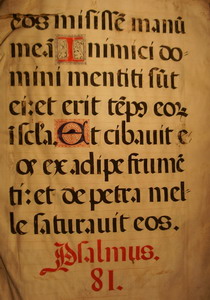 eos misissē manū
me.ā Inimici do-
mini mentiti sūt
ei: et erit tēp⁹ eoꝝ
ī scła. Et cibavit e
os ex adipe frumē
ti: et de petra mel-
le saturavit eos.
Psalmus.
81.